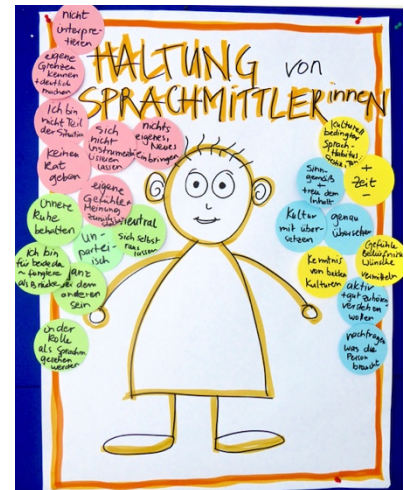 nicht
interpre-
tieren
HALTUNG von
SPRACHMITTLERinnen
eigene
Grenzen
kennen
+ deutlich
machen
Ich bin
nicht Teil
der Situation
sich
nicht
instrumentali
sieren
lassen
nichts
eigenes, Neues
einbringen
keinen
Rat
geben
eigene
Gefühle +
Meinung
innere
Ruhe
behalten
neutral
un-
partei-
isch
sich selbst
raus
lassen
Ich bin
für beide da
~ fungiere
als Brücke
bei dem
anderen
sein
in der
Rolle
als Sprachm.
gesehen
werden
kulturell
bedingter
Sprach-
+
Zeit
-
Sinn-
gemäß
+
treu dem
Inhalt
Kultur
mit über-
setzen
genau
übersetzen
Gefühle
Bedürfnisse
Wünsche
vermitteln
Kenntnis
von beiden
Kulturen
aktiv
+ gut zuhören
verstehen
wollen
nachfragen
was die
Person
braucht